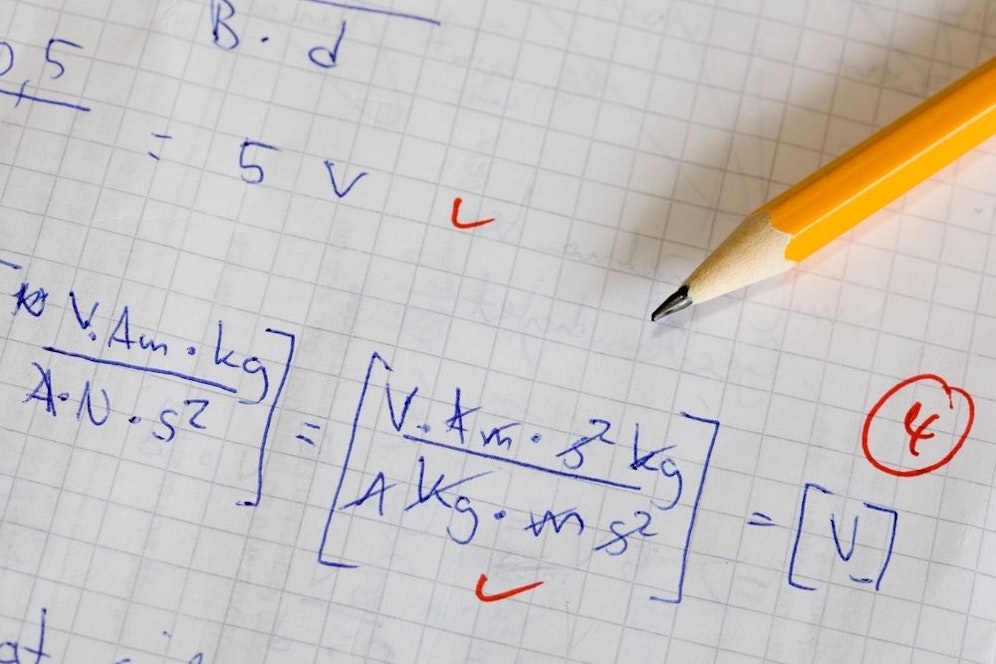 B · d
0,5
= 5 V
V·Am · kg
A·N·s²
= [V·Am · s² kg
A kg · m s²] = [V]
4
at